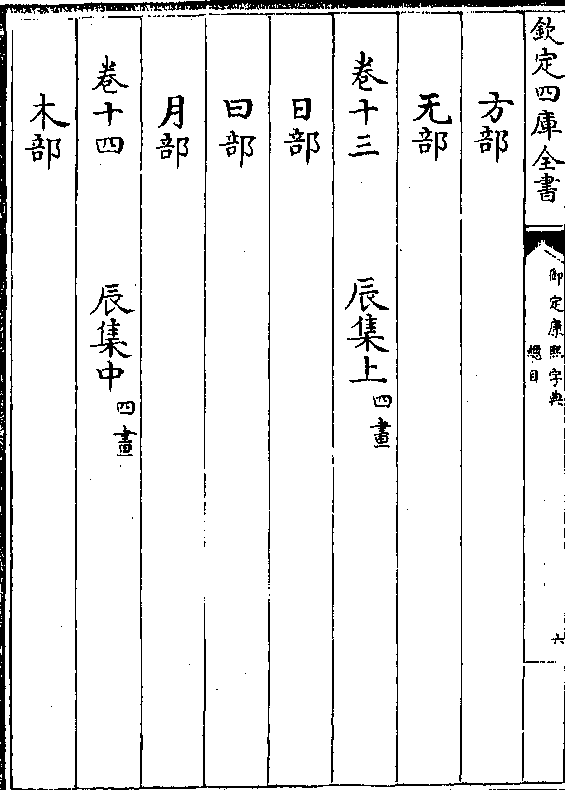 欽定四庫全書
御定康熙字典
總目
六
方部
无部
卷十三 辰集上 四畫
日部
曰部
月部
卷十四 辰集中 四畫
木部